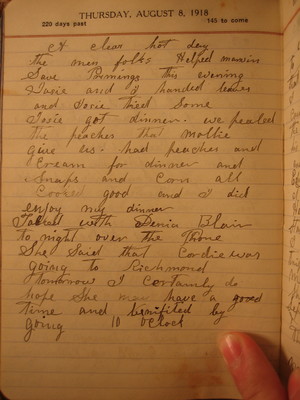 THURSDAY, AUGUST 8, 1918
220 days past 145 to come
A clear hot day
the men folks Helped
this evening
and I handed leaves
and Josie tied Some
Josie got dinner. we pealed
the peaches that Mollie
give us. had peaches and
Cream for dinner and
Snaps and Corn all
Cooked good and I did
enjoy my dinner
Talked with Blair
to night over the Phone
She Said that Cordie was
going to Richmond
tomorrow I certainly do
hope She may have a good
time and benifited by
going 10 oClock